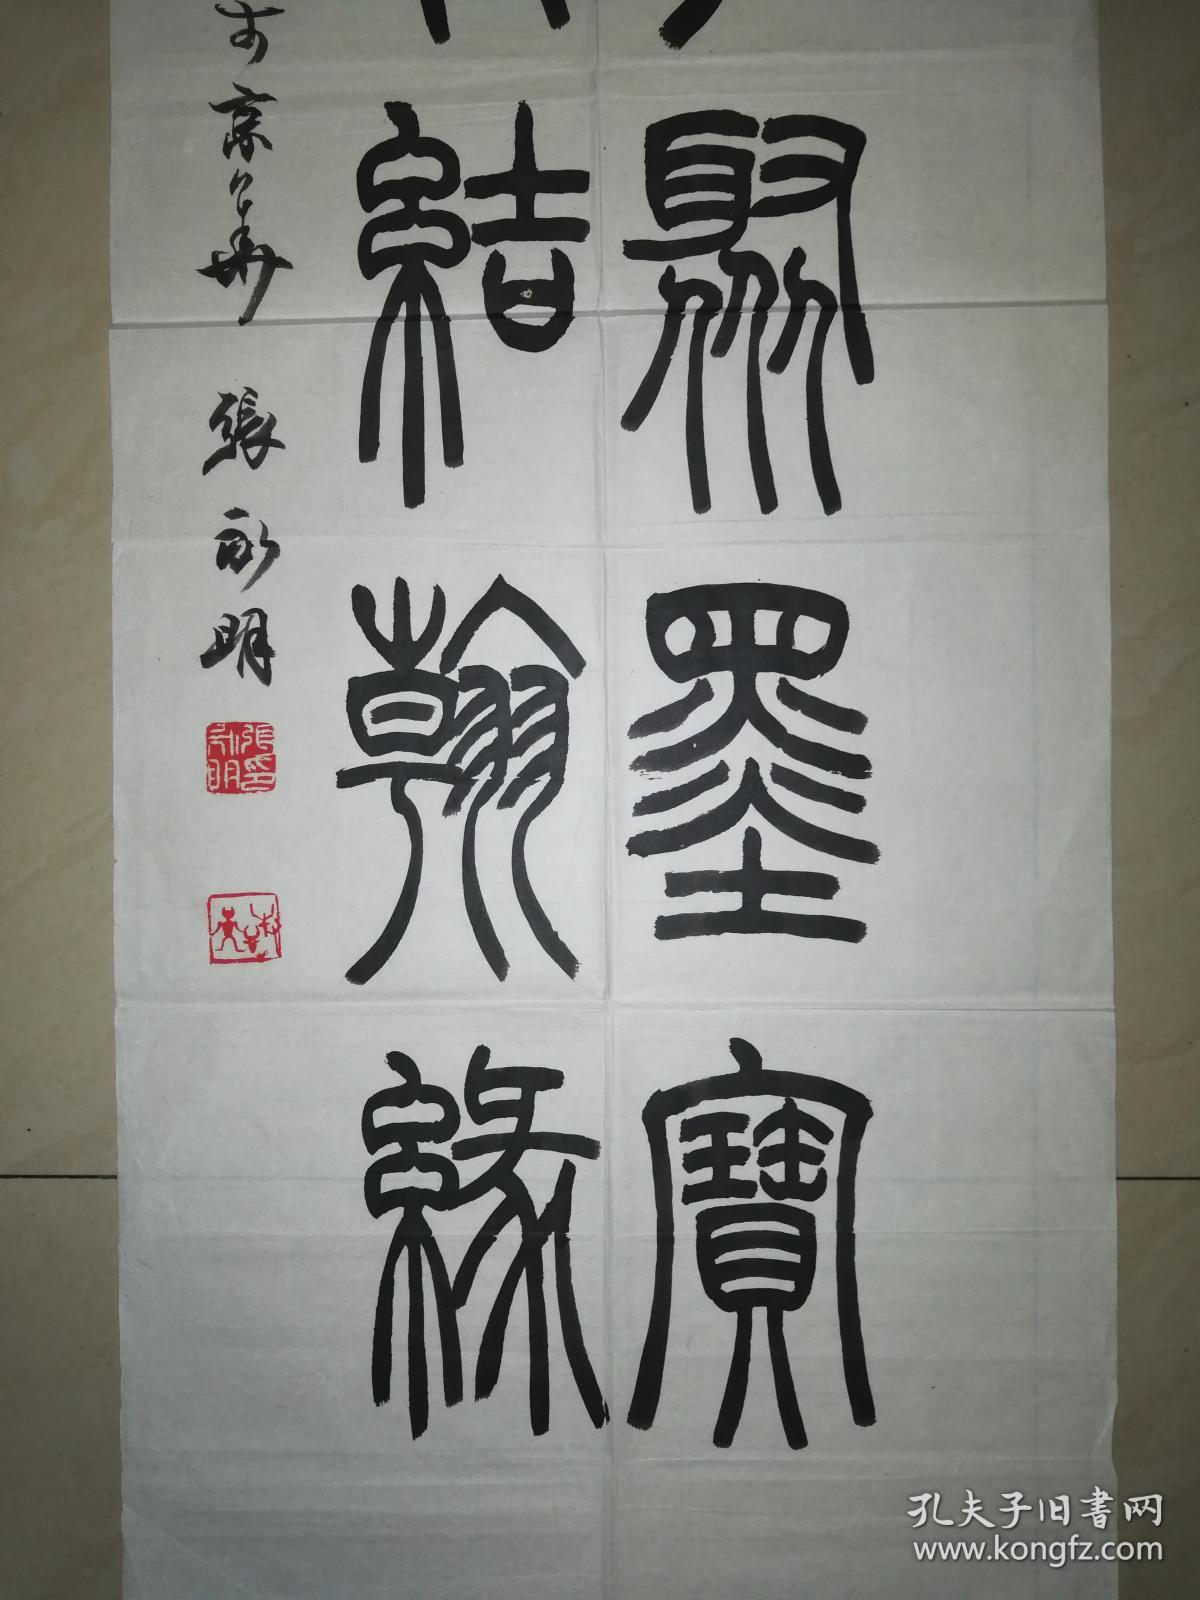 聚墨寶
結翰緣
於京華 張永明
張永明印
孔夫子旧书网
www.kongfz.com